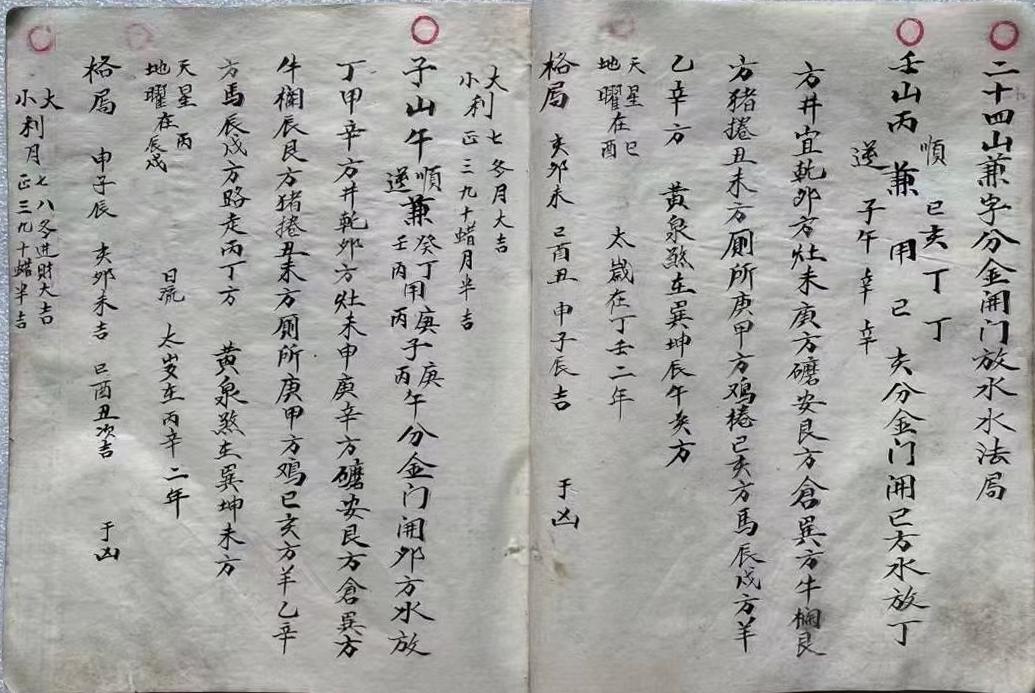 二十四山兼字分金開门放水水法局
壬山丙兼
順
逆
巳亥丁丁
子午辛辛
用巳亥分金门開巳方水放丁
方井宜乾卯方灶未庚方磨安艮方倉巽方牛欄艮
方猪捲丑未方厠所庚甲方鸡捲巳亥方馬辰戌方羊
乙辛方 黃泉煞在巽坤辰午亥方
天星巳
地曜在酉
太歲在丁壬二年
格局 亥卯未 巳酉丑 申子辰吉 于凶
大 七冬月大吉
小利 正三九十蜡月半吉
子山午
順
逆
兼
癸丁
壬丙
用
庚子庚
丙丙午
分金门開卯方水放
丁甲辛方井乾卯方灶未申庚辛方磨安艮方倉巽方
牛欄辰艮方猪捲丑未方厠所庚甲方鸡巳亥方羊乙辛
方馬辰戌方路走丙丁方 黃泉煞在巽坤未方
天星丙
地曜在辰戌
日流 太岁在丙辛二年
格局 申子辰 亥卯未吉 巳酉丑次吉 于凶
大 七八冬进財大吉
小利月 正三九十蜡半吉